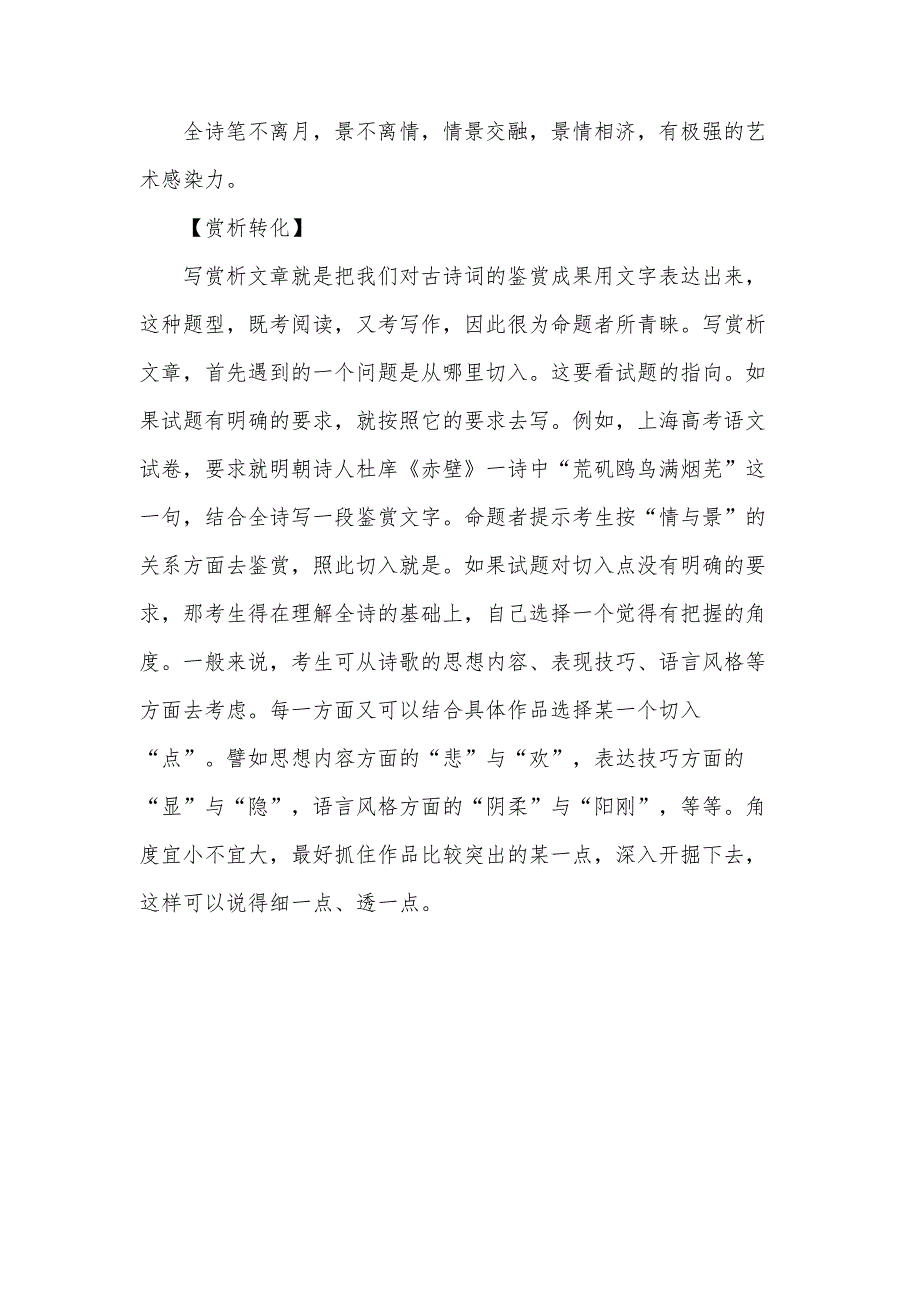 全诗笔不离月，景不离情，情景交融，景情相济，有极强的艺
术感染力。
【赏析转化】
写赏析文章就是把我们对古诗词的鉴赏成果用文字表达出来，
这种题型，既考阅读，又考写作，因此很为命题者所青睐。写赏析
文章，首先遇到的一个问题是从哪里切入。这要看试题的指向。如
果试题有明确的要求，就按照它的要求去写。例如，上海高考语文
试卷，要求就明朝诗人杜庠《赤壁》一诗中“荒矶鸥鸟满烟芜”这
一句，结合全诗写一段鉴赏文字。命题者提示考生按“情与景”的
关系方面去鉴赏，照此切入就是。如果试题对切入点没有明确的要
求，那考生得在理解全诗的基础上，自己选择一个觉得有把握的角
度。一般来说，考生可从诗歌的思想内容、表现技巧、语言风格等
方面去考虑。每一方面又可以结合具体作品选择某一个切入
“点”。譬如思想内容方面的“悲”与“欢”，表达技巧方面的
“显”与“隐”，语言风格方面的“阴柔”与“阳刚”，等等。角
度宜小不宜大，最好抓住作品比较突出的某一点，深入开掘下去，
这样可以说得细一点、透一点。